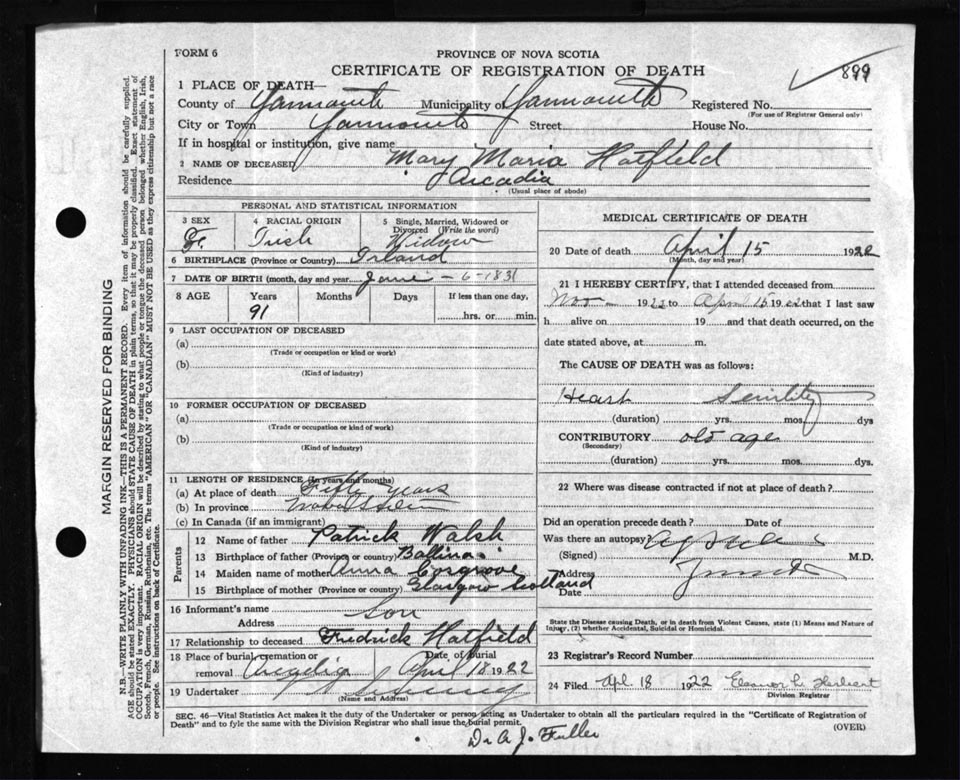 FORM 6
PROVINCE OF NOVA SCOTIA
CERTIFICATE OF REGISTRATION OF DEATH
899
1 PLACE OF DEATH—
County of Yarmouth Municipality of Yarmouth Registered No.
(For use of Registrar General only)
City or Town Yarmouth Street House No.
If in hospital or institution, give name
2 NAME OF DECEASED Mary Maria Hatfield
Residence Arcadia
(Usual place of abode)
PERSONAL AND STATISTICAL INFORMATION
3 SEX 4 RACIAL ORIGIN 5 Single, Married, Widowed or Divorced (Write the word)
Fe Irish Widow
6 BIRTHPLACE (Province or Country) Irland
7 DATE OF BIRTH (month, day and year) June - 6 - 1831
8 AGE Years Months Days If less than one day,
91 hrs. or min.
9 LAST OCCUPATION OF DECEASED
(a)
(Trade or occupation or kind or work)
(b)
(Kind of industry)
10 FORMER OCCUPATION OF DECEASED
(a)
(Trade or occupation or kind or work)
(b)
(Kind of industry)
11 LENGTH OF RESIDENCE (In years and months)
(a) At place of death Fifty years
(b) In province
(c) In Canada (if an immigrant)
Parents
12 Name of father Patrick Walsh
13 Birthplace of father (Province or country) Ballina
14 Maiden name of mother Anna Cosgrove
15 Birthplace of mother (Province or country) Glasgow Scotland
16 Informant's name
Address Son
17 Relationship to deceased Fredrick Hatfield
18 Place of burial, cremation or removal Arcadia Date of burial April 18 1922
19 Undertaker
(Name and Address)
MEDICAL CERTIFICATE OF DEATH
20 Date of death April 15 1922
(Month, day and year)
21 I HEREBY CERTIFY, that I attended deceased from
Nov 1922 to April 15 1922 that I last saw
h alive on 19 and that death occurred, on the
date stated above, at m.
The CAUSE OF DEATH was as follows:
Heart Senility
(duration) yrs. mos. dys
CONTRIBUTORY old age
(Secondary)
(duration) yrs. mos. dys.
22 Where was disease contracted if not at place of death?
Did an operation precede death? Date of
Was there an autopsy
(Signed) M.D.
Address
Date
State the Disease causing Death, or in death from Violent Causes, state (1) Means and Nature of
Injury, (2) whether Accidental, Suicidal or Homicidal.
23 Registrar's Record Number
24 Filed Apl. 18 1922 Eleanor L. Herbert
Division Registrar
SEC. 46—Vital Statistics Act makes it the duty of the Undertaker or person acting as Undertaker to obtain all the particulars required in the "Certificate of Registration of
Death" and to fyle the same with the Division Registrar who shall issue the burial permit.
(OVER)
Dr A. J. Fuller
MARGIN RESERVED FOR BINDING
N.B.—WRITE PLAINLY WITH UNFADING INK—THIS IS A PERMANENT RECORD. Every item of information should be carefully supplied.
AGE should be stated EXACTLY. PHYSICIANS should STATE CAUSE OF DEATH in plain terms, so that it may be properly classified. Exact statement of
OCCUPATION is very important. RACIAL ORIGIN will be described by stating to what people or tongue the deceased person belonged whether English, Irish,
Scotch, French, German, Russian, Ruthenian, etc. The terms "AMERICAN" OR "CANADIAN" MUST NOT BE USED as they express citizenship but not a race
or people. See instructions on back of Certificate.